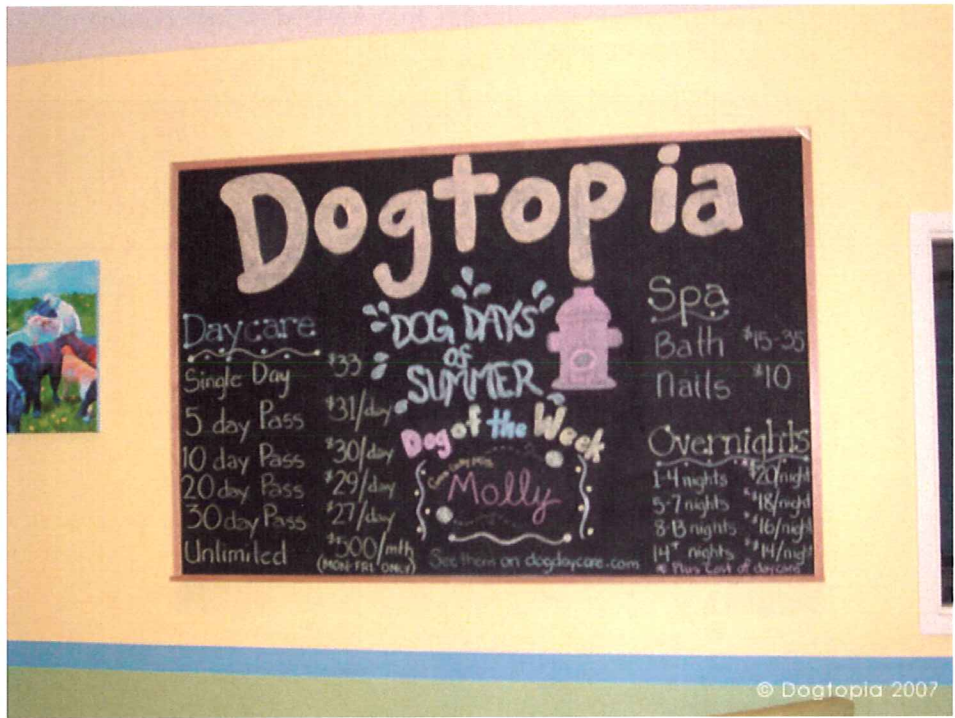 Dogtopia
Daycare
Single Day $33
5 day Pass $31/day
10 day Pass $30/day
20 day Pass $29/day
30 day Pass $27/day
Unlimited $500/mth
(MON-FRI ONLY)
DOG DAYS
OF
SUMMER
Dog of the Week
Molly
See them on dogdaycare.com
Spa
Bath $15-35
Nails $10
Overnights
1-4 nights *$20/night
5-7 nights *$18/night
8-13 nights *$16/night
14+ nights *$14/night
* Plus cost of daycare
© Dogtopia 2007